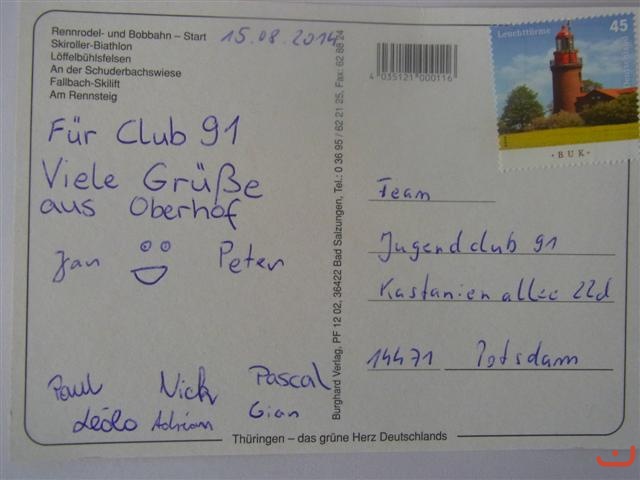 Rennrodel- und Bobbahn – Start
Skiroller-Biathlon
Löffelbühlsfelsen
An der Schuderbachswiese
Fallbach-Skilift
Am Rennsteig
15.08.2014
Für Club 91
Viele Grüße
aus Oberhof
Jan Peter
Paul Nick Pascal
Adrian Gian
Burghard Verlag, PF 12 02, 36422 Bad Salzungen, Tel.: 0 36 95 / 62 21 25, Fax: 62 88 24
4 035121 000116
Leuchttürme 45
Deutschland
BUK
Team
Jugendclub 91
Kastanienallee 22d
14471 Potsdam
Thüringen – das grüne Herz Deutschlands